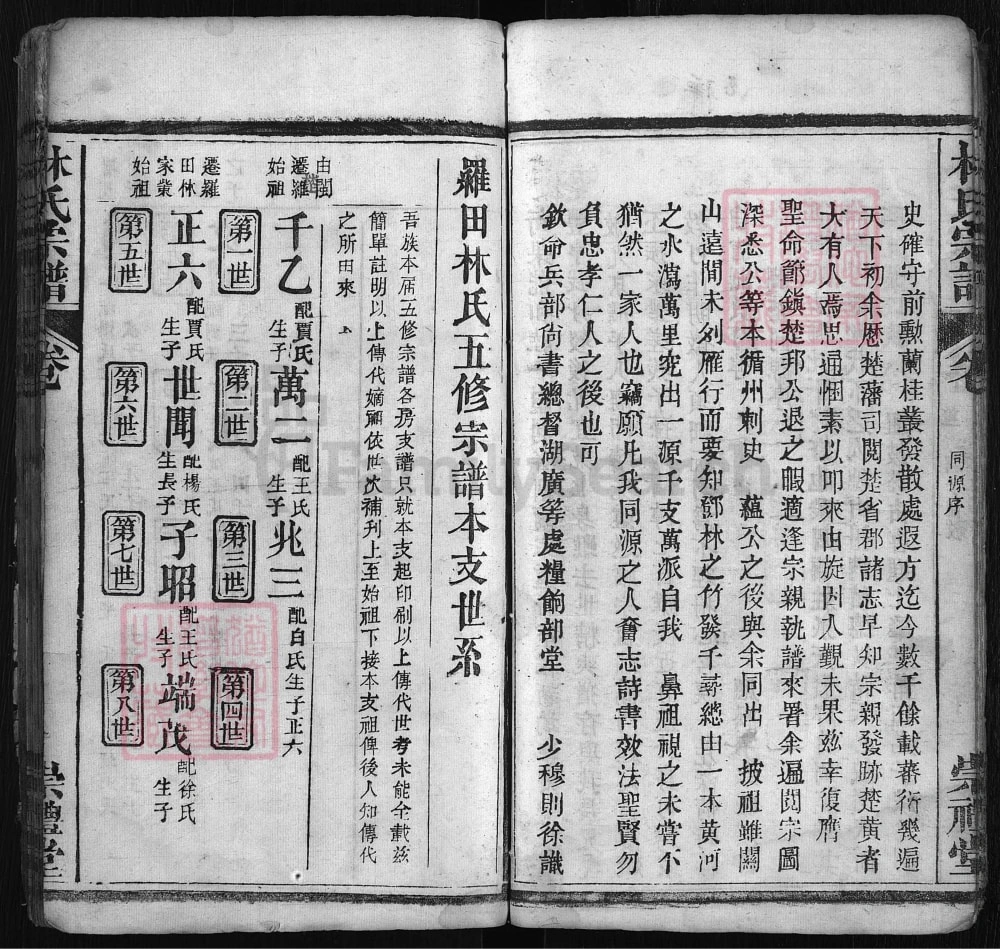 林氏宗譜
卷
同源序
崇禮堂
史確守前勳蘭桂叢發散處遐方迄今數千餘載蕃衍幾遍
天下初余歷楚藩司閱楚省郡諸志早知宗親發跡楚黃者
大有人焉思通悃素以叩來由旋因入覲未果茲幸復膺
聖命節鎭楚邦公退之暇適逢宗親執譜來署余遍閱宗圖
深悉公等本循州刺史 蘊公之後與余同出 披祖雖關
山遠間未列雁行而要知鄧林之竹發千尋總由一本黃河
之水瀉萬里究出一源千支萬派自我 鼻祖視之未嘗不
猶然一家人也竊願凡我同源之人奮志詩書效法聖賢勿
負忠孝仁人之後也可
欽命兵部尙書總督湖廣等處糧餉部堂 少穆則徐識
羅田林氏五修宗譜本支世系
吾族本屆五修宗譜各房支譜只就本支起印刷以上傳代世考未能全載茲
簡單註明以上傳代嫡嗣依世次補刋上至始祖下接本支祖俾後人知傳代
之所由來 上
由閩遷羅始祖
第一世
千乙 配賈氏 生子
第二世
萬二 配王氏 生子
第三世
兆三 配白氏生子正六
第四世
遷羅田林家業始祖
正六 配賈氏 生子
第五世
世聞 配楊氏 生長子
第六世
子昭 配王氏 生子
第七世
端茂 配徐氏 生子
第八世
林氏宗譜
卷
崇禮堂
FamilySearch